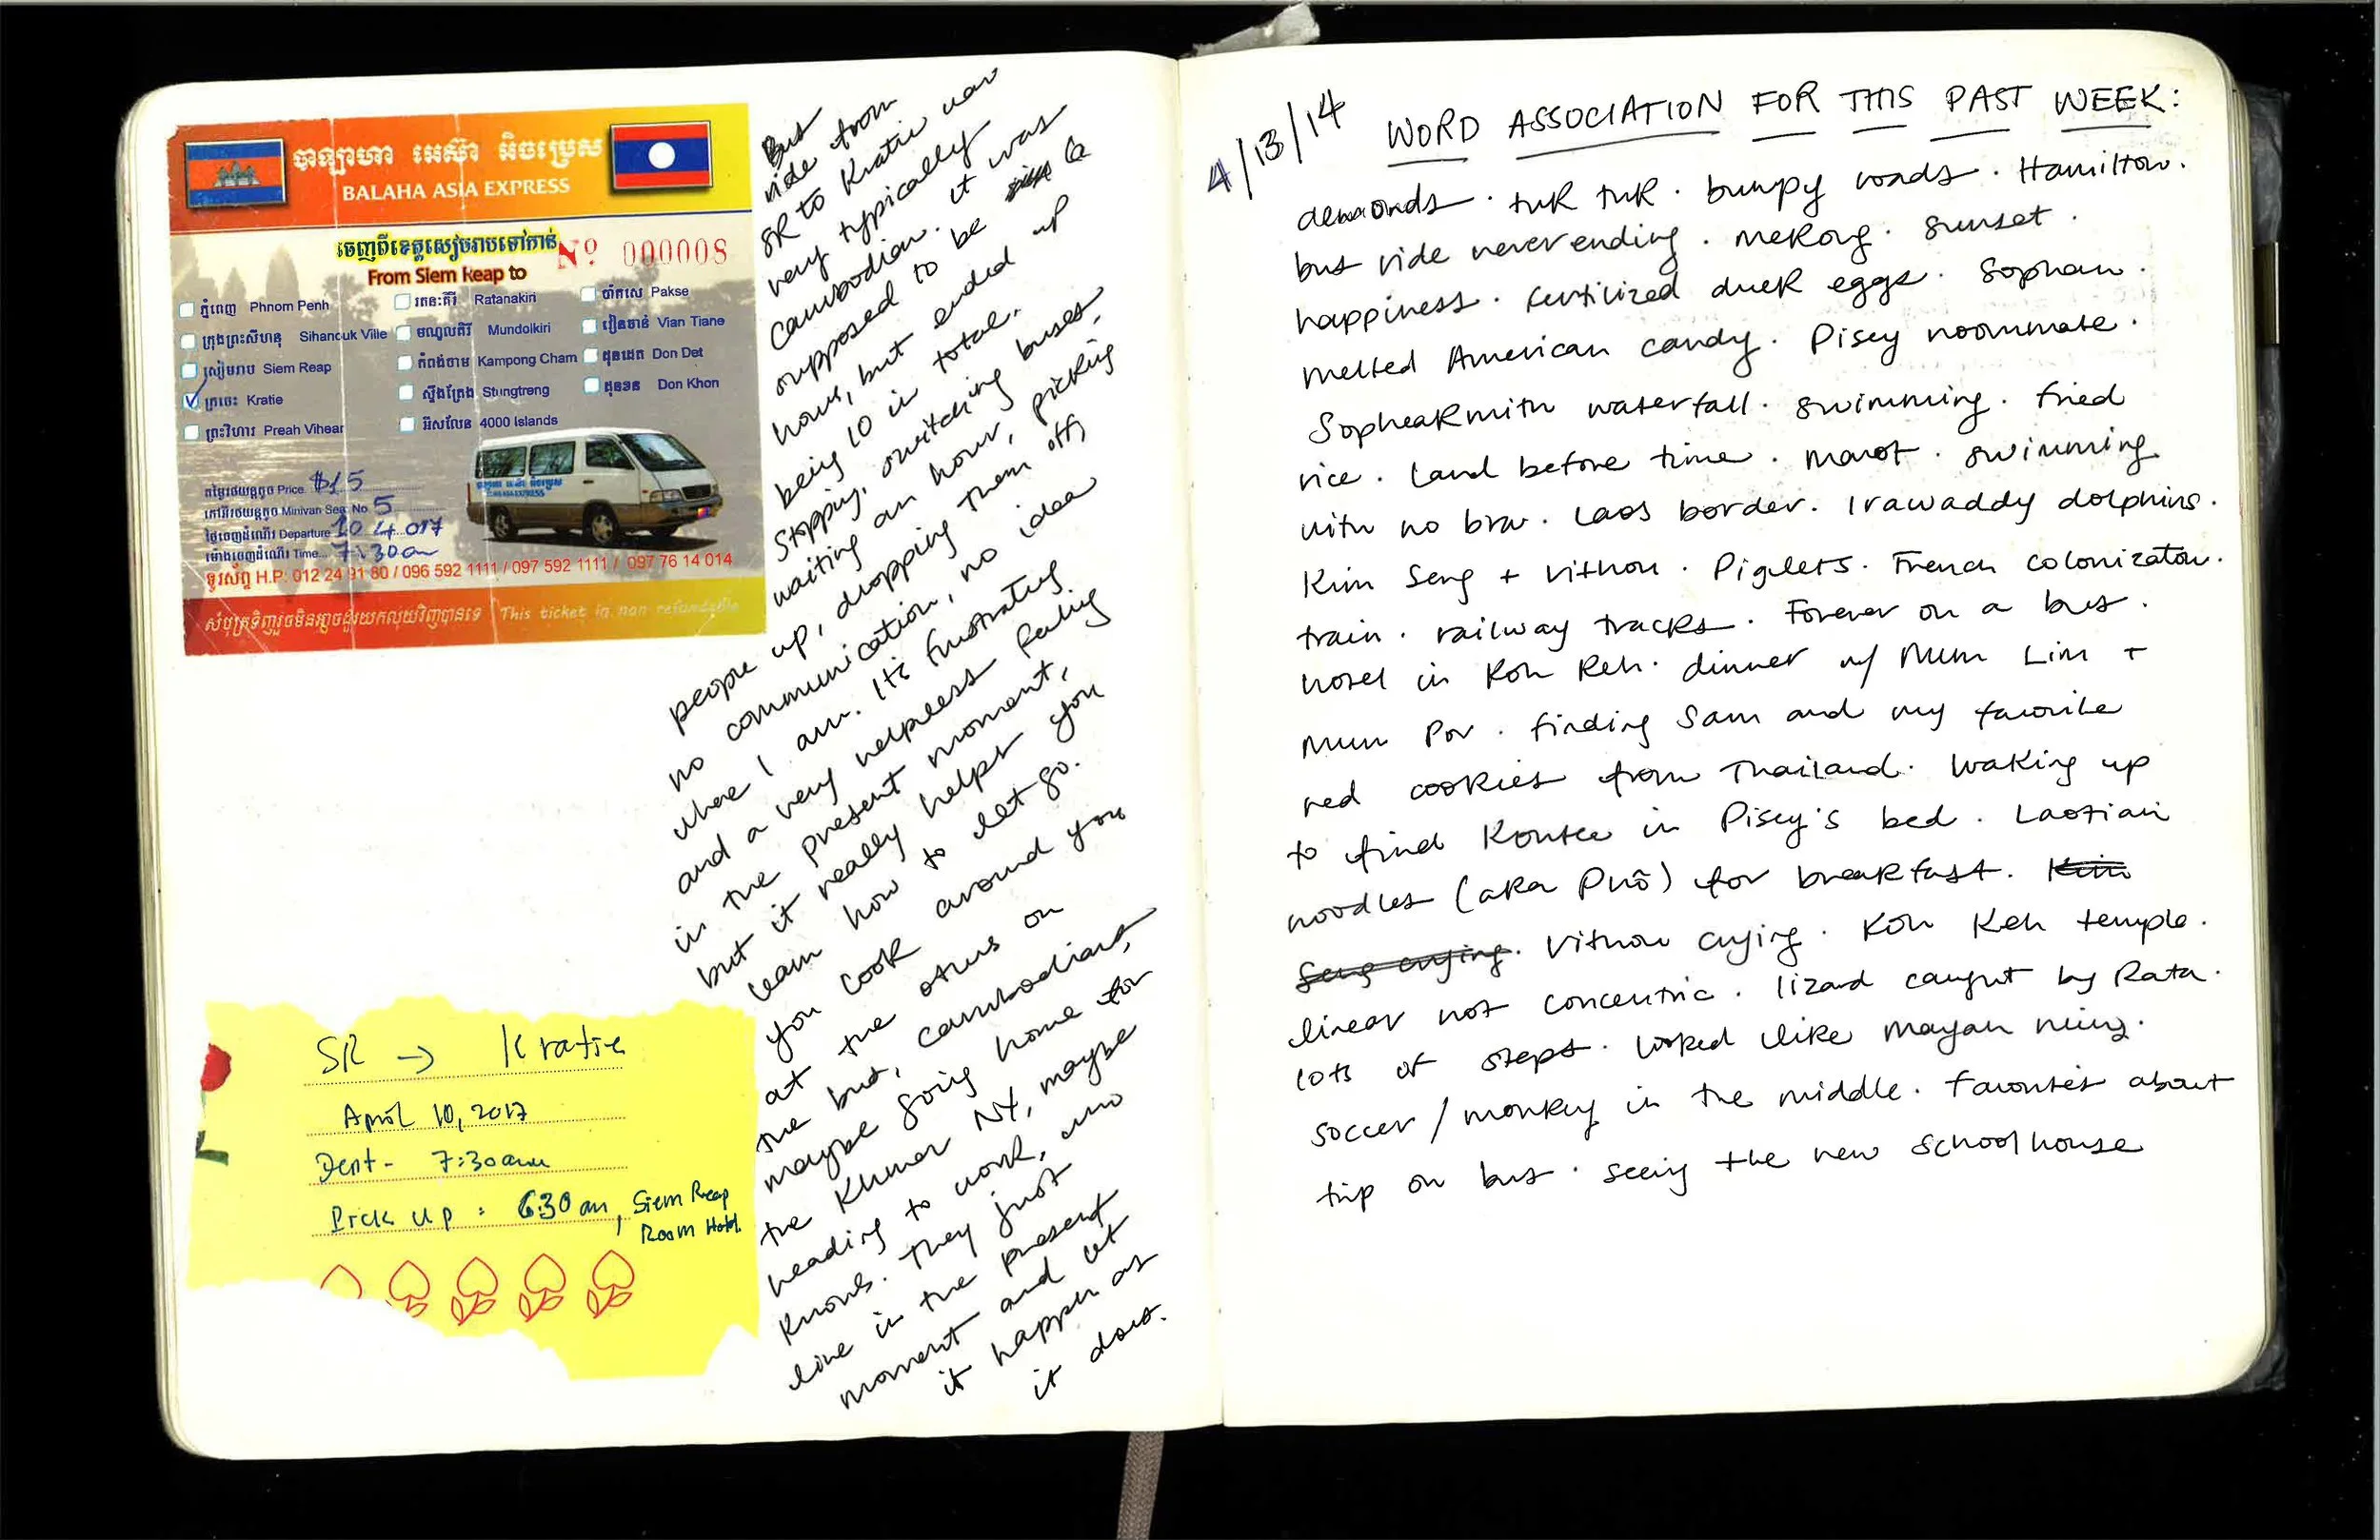 បាឡាហា អេស៊ា អិចប្រេស
BALAHA ASIA EXPRESS
ចេញពីខេត្តសៀមរាបទៅកាន់
From Siem Reap to
Nº 000008
ភ្នំពេញ Phnom Penh
ក្រុងព្រះសីហនុ Sihanouk Ville
សៀមរាប Siem Reap
ក្រចេះ Kratie
ព្រះវិហារ Preah Vihear
រតនៈគីរី Ratanakiri
មណ្ឌលគីរី Mundolkiri
កំពង់ចាម Kampong Cham
ស្ទឹងត្រែង Stungtreng
អីសលែន 4000 Islands
ប៉ាកសេ Pakse
វៀនចាន់ Vian Tiane
ដុនដេត Don Det
ដុនខន Don Khon
តម្លៃរថយន្តតូច Price $15
លេខកៅអីរថយន្តតូច Minivan Seat No 5
ថ្ងៃចេញដំណើរ Departure 10 4 017
ម៉ោងចេញដំណើរ Time 7:30am
ទូរស័ព្ទ H.P: 012 24 91 80 / 096 592 1111 / 097 592 1111 / 097 76 14 014
This ticket is non refundable
SR → Kratie
April 10, 2017
Dept - 7:30am
Pick up : 6:30 am, Siem Reap
Room Hotel.
Bus
ride from
SR to Kratie was
very typically
Cambodian. it was
supposed to be 6
hours, but ended up
being 10 in total.
Stopping, switching buses,
waiting an hour, picking
people up, dropping them off,
no communication, no idea
where I am. It's frustrating
and a very helpless feeling
in the present moment,
but it really helps you
learn how to let go.
you look around you
at the others on
the bus, cambodians,
maybe going home for
the Khmer NY, maybe
heading to work, who
knows. They just
live in the present
moment and let
it happen as
it does.
4/13/14
WORD ASSOCIATION FOR THIS PAST WEEK:
tuk tuk. bumpy roads. Hamilton.
bus ride never ending. Mekong. sunset.
happiness. fertilized duck eggs. Sophan.
melted American candy. Pisey roommate.
Sopheakmith waterfall. swimming. fried
rice. Land before time. Marot. swimming
with no bra. Laos border. Irawaddy dolphins.
Kim Seng + Vithou. Piglets. French colonization.
train. railway tracks. Forever on a bus.
hotel in Koh Keh. dinner w/ Mum Lim +
Mum Pov. finding Sam and my favorite
red cookies from Thailand. waking up
to find in Pisey's bed. Laotian
noodles (aka Phỏ) for breakfast. Kim
Seng crying. Vithou crying. Koh Keh temple.
linear not concentric. lizard caught by Rata.
lots of steps. looked like mayan ruins.
soccer/monkey in the middle. favorites about
trip on bus. seeing the new schoolhouse